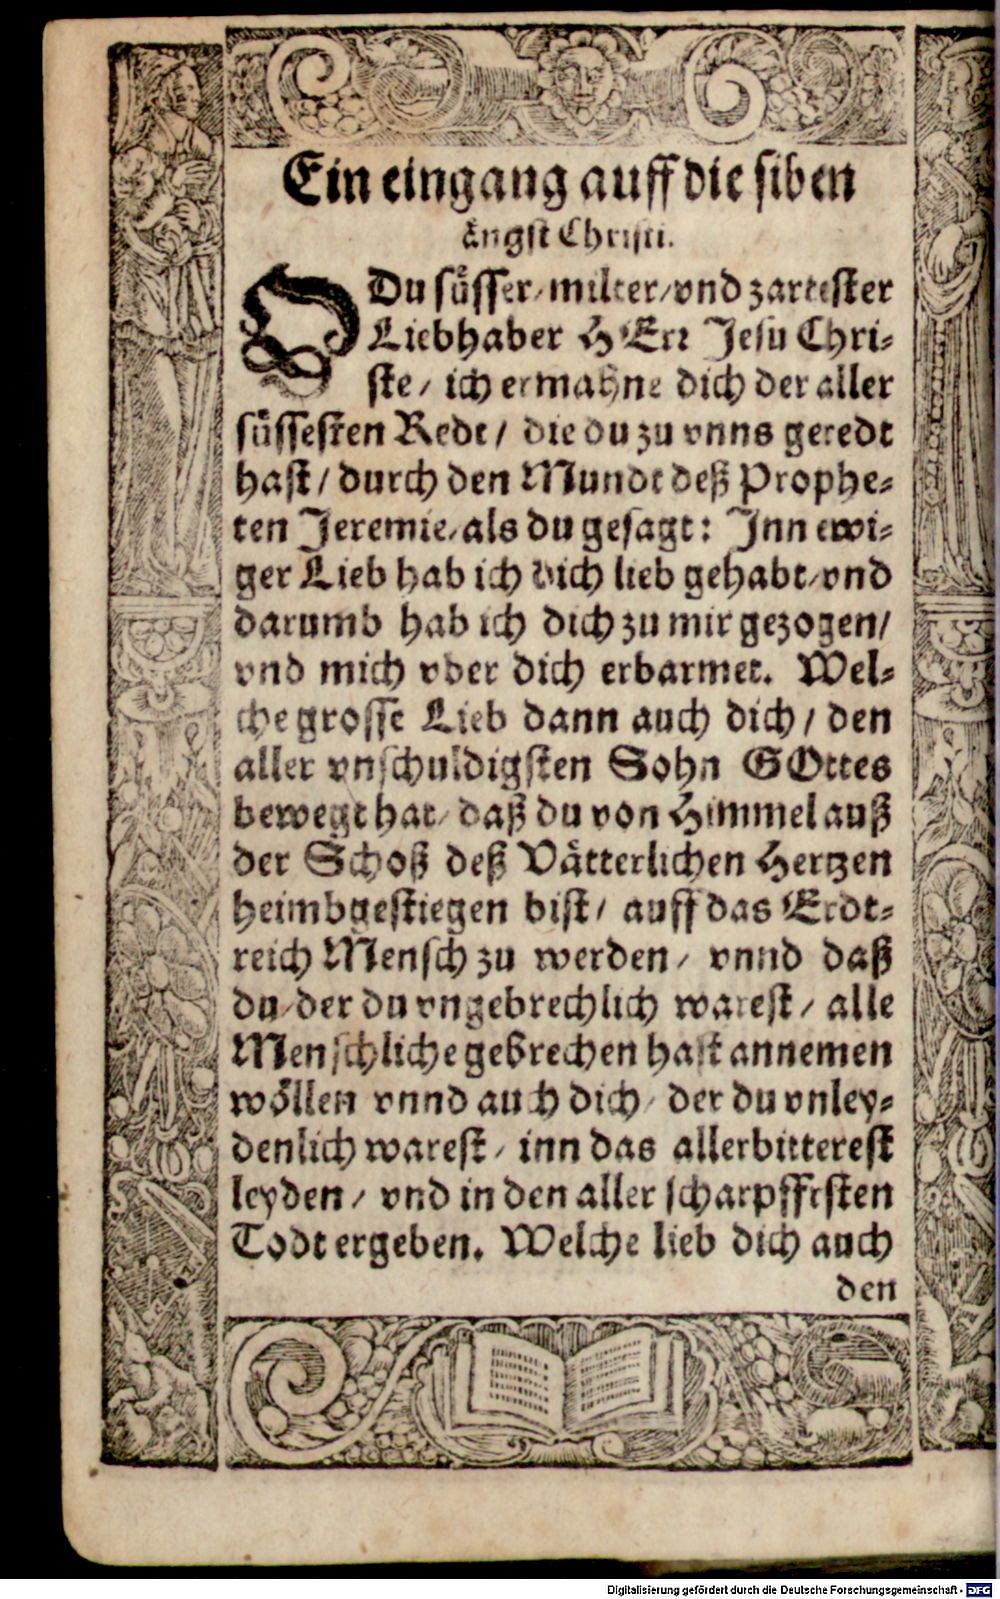 Ein eingang auff die siben
ängst Christi.
O Du süsser/ milter/ vnd zartester
Liebhaber HErr Jesu Chri-
ste/ ich ermahne dich der aller
süssesten Redt/ die du zu vnns geredt
hast/ durch den Mundt deß Prophe-
ten Jeremie/ als du gesagt: Inn ewi-
ger Lieb hab ich dich lieb gehabt/ vnd
darumb hab ich dich zu mir gezogen/
vnd mich vber dich erbarmet. Wel-
che grosse Lieb dann auch dich/ den
aller vnschuldigsten Sohn GOttes
bewegt hat/ daß du von Himmel auß
der Schoß deß Vätterlichen Hertzen
heimbgestiegen bist/ auff das Erdt-
reich Mensch zu werden/ vnnd daß
du/ der du vngebrechlich warest/ alle
Menschliche gebrechen hast annemen
wöllen vnnd auch dich/ der du vnley-
denlich warest/ inn das allerbitterest
leyden/ vnd in den aller scharpffesten
Todt ergeben. Welche lieb dich auch
den
Digitalisierung gefördert durch die Deutsche Forschungsgemeinschaft - DFG